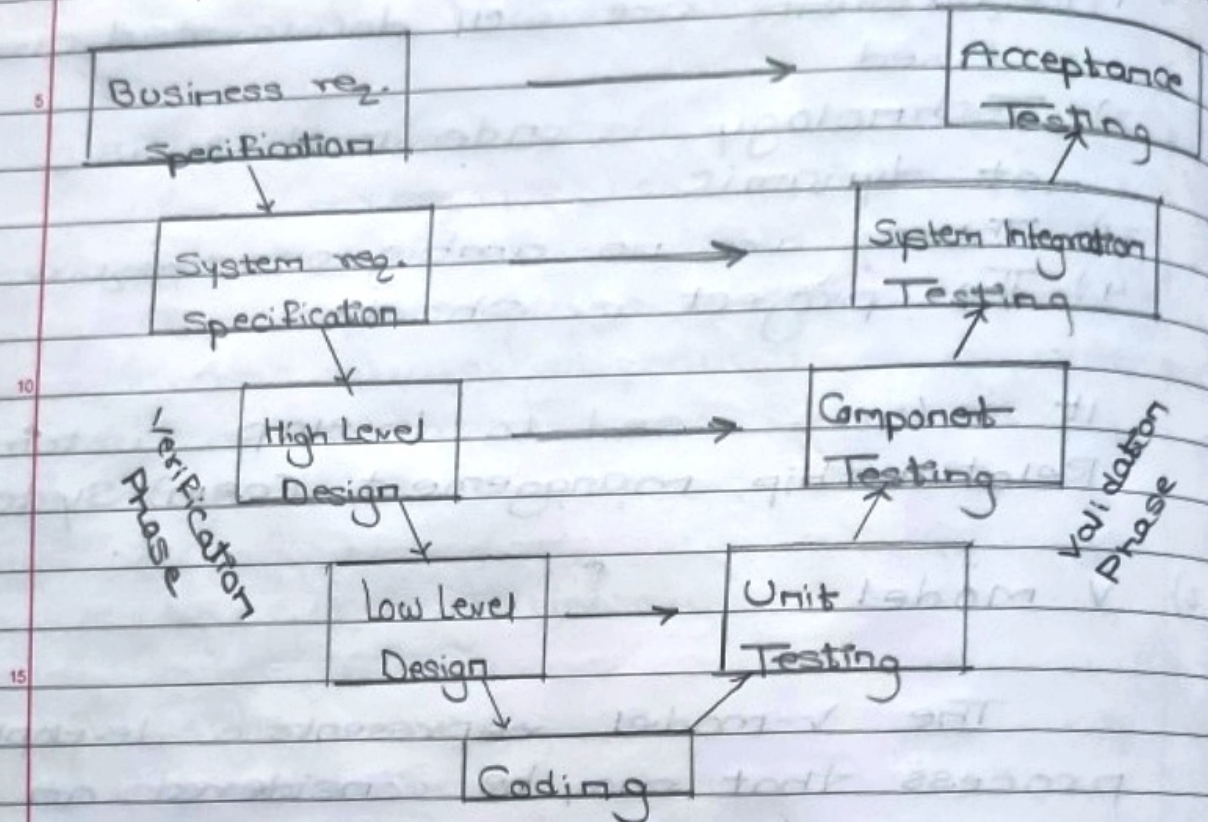 5
Business req.
specification
Acceptance
Testing
System req.
specification
System Integration
Testing
10
High Level
Design
Component
Testing
Verification
Phase
Validation
Phase
Low Level
Design
Unit
Testing
15
Coding